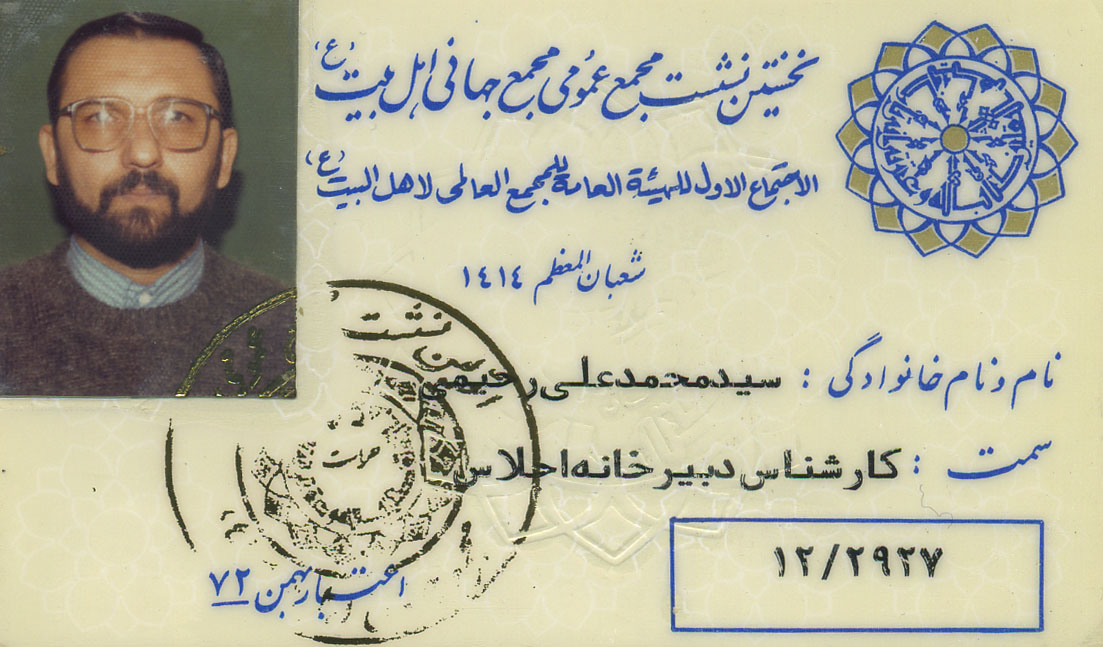 نخستین نشست مجمع عمومی مجمع جهانی اهل بیت (ع)
الاجتماع الاول للهیئة العامة للمجمع العالمی لاهل البیت (ع)
شعبان المعظم ۱۴۱۴
نام و نام خانوادگی : سیدمحمدعلی رحیمی
سمت : کارشناس دبیرخانه اجلاس
۱۲/۲۹۲۷
اعتبار بهمن ۷۲
نشست